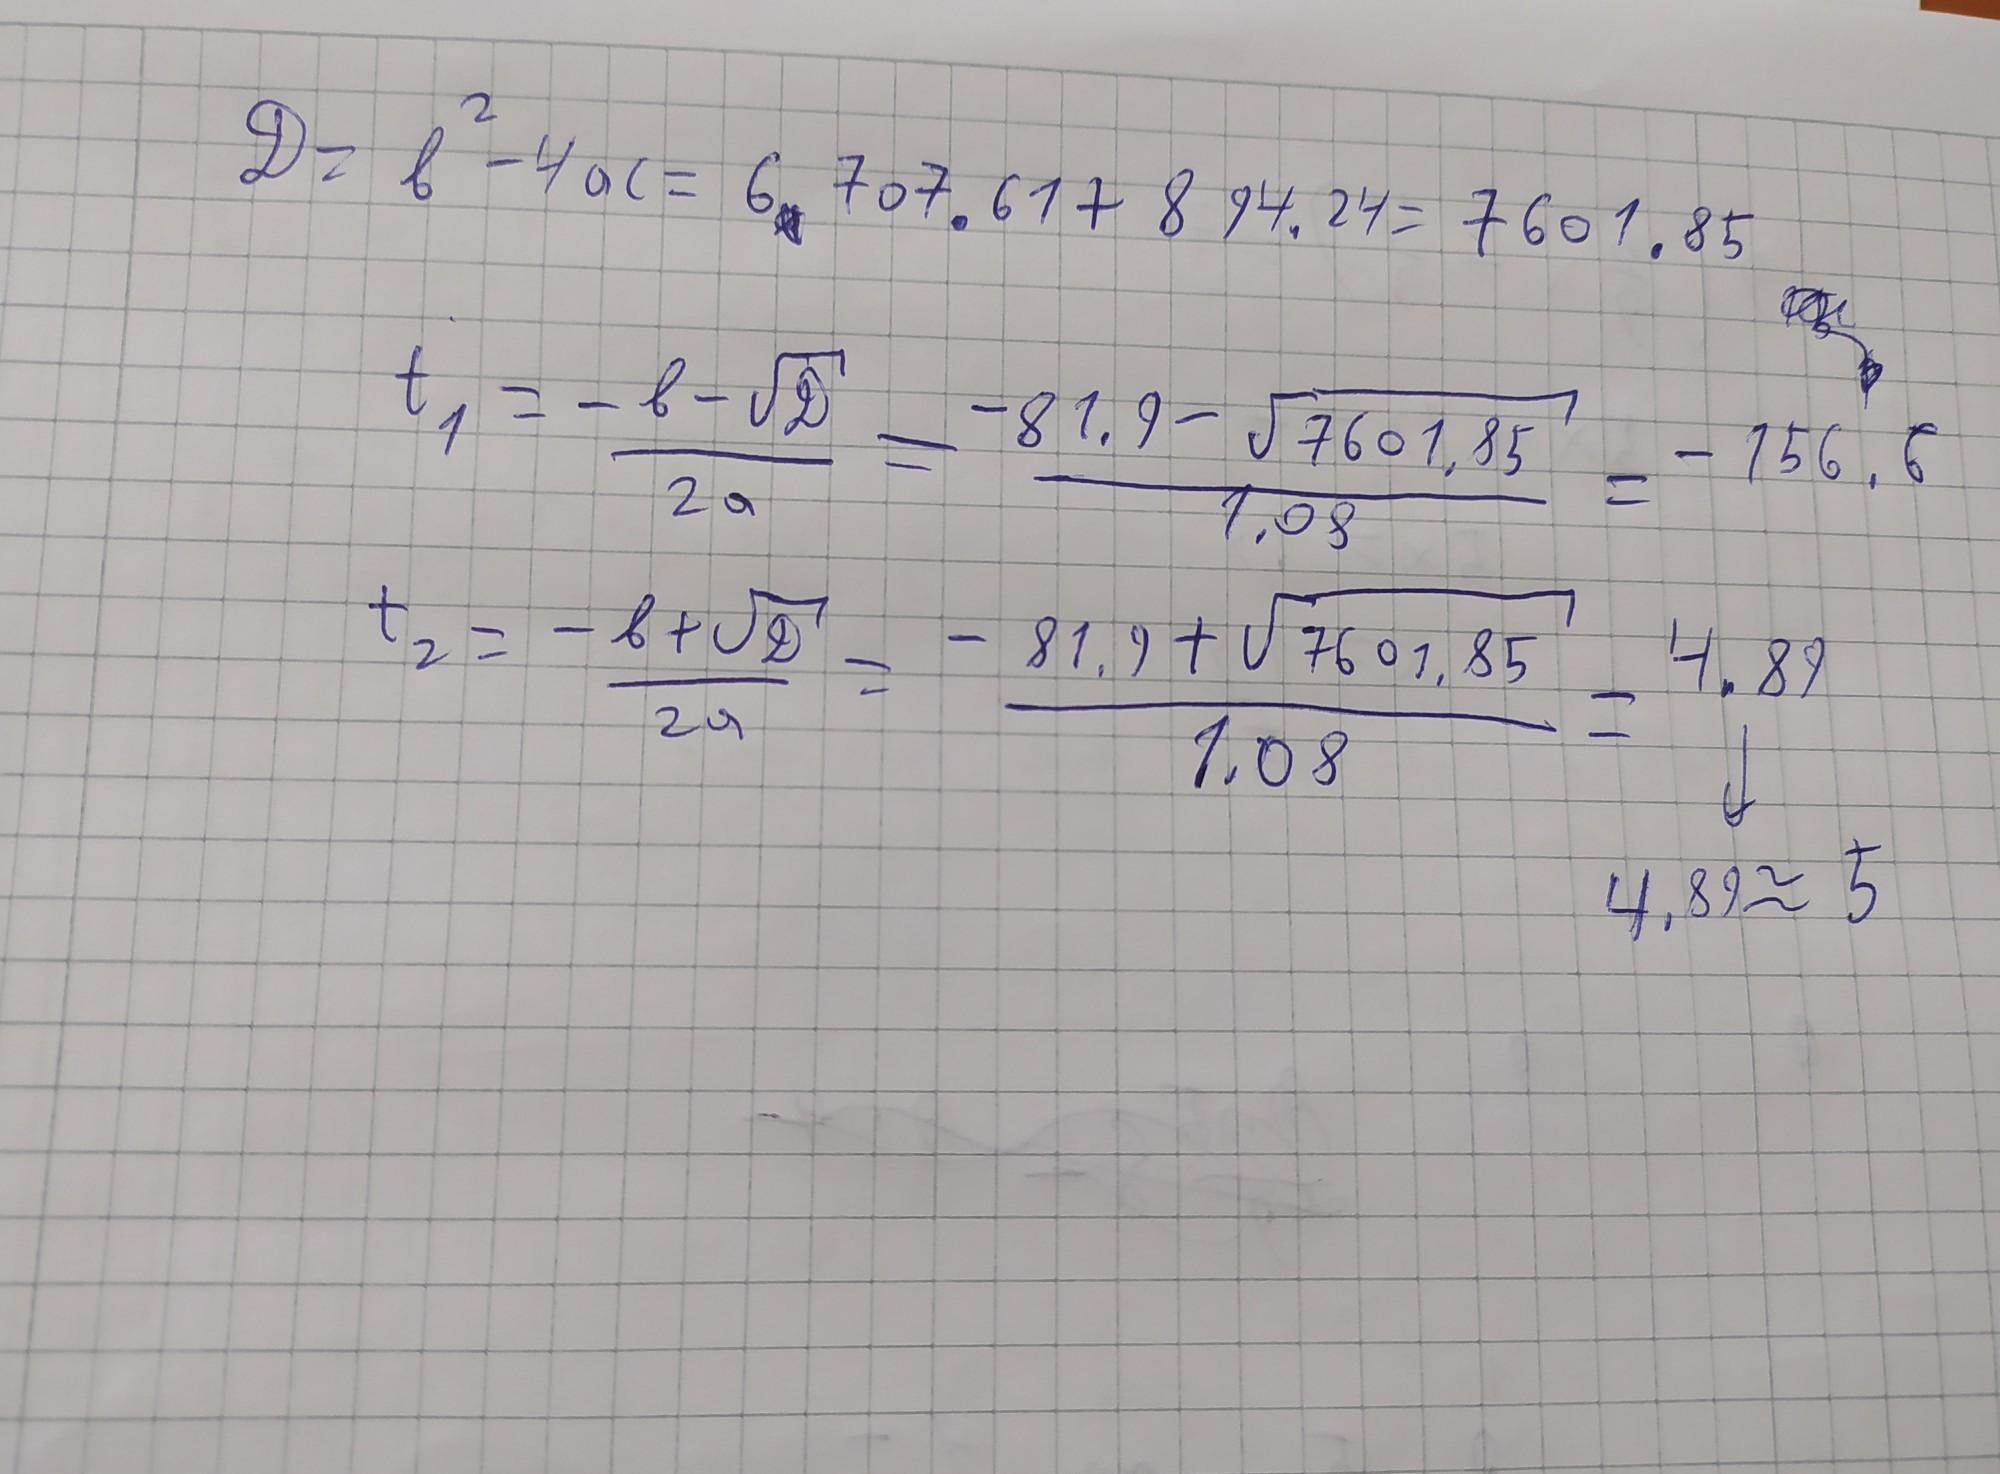 D = b² - 4ac = 6 707.61 + 894.24 = 7601.85
t₁ = -b - √D / 2a = -81.9 - √7601.85 / 1.08 = -156.6
t₂ = -b + √D / 2a = -81.9 + √7601.85 / 1.08 = 4.89
4.89 ≈ 5